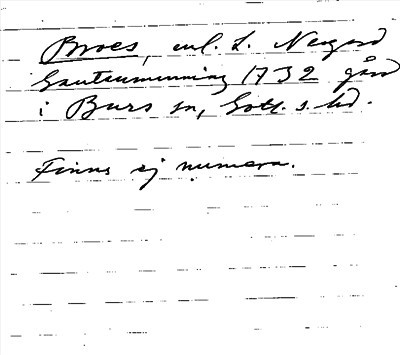 Broes, enl. L. Neogard
Gautauminning 1732 gård
i Burs sn, Gotl. s. hd.
Finns ej numera.